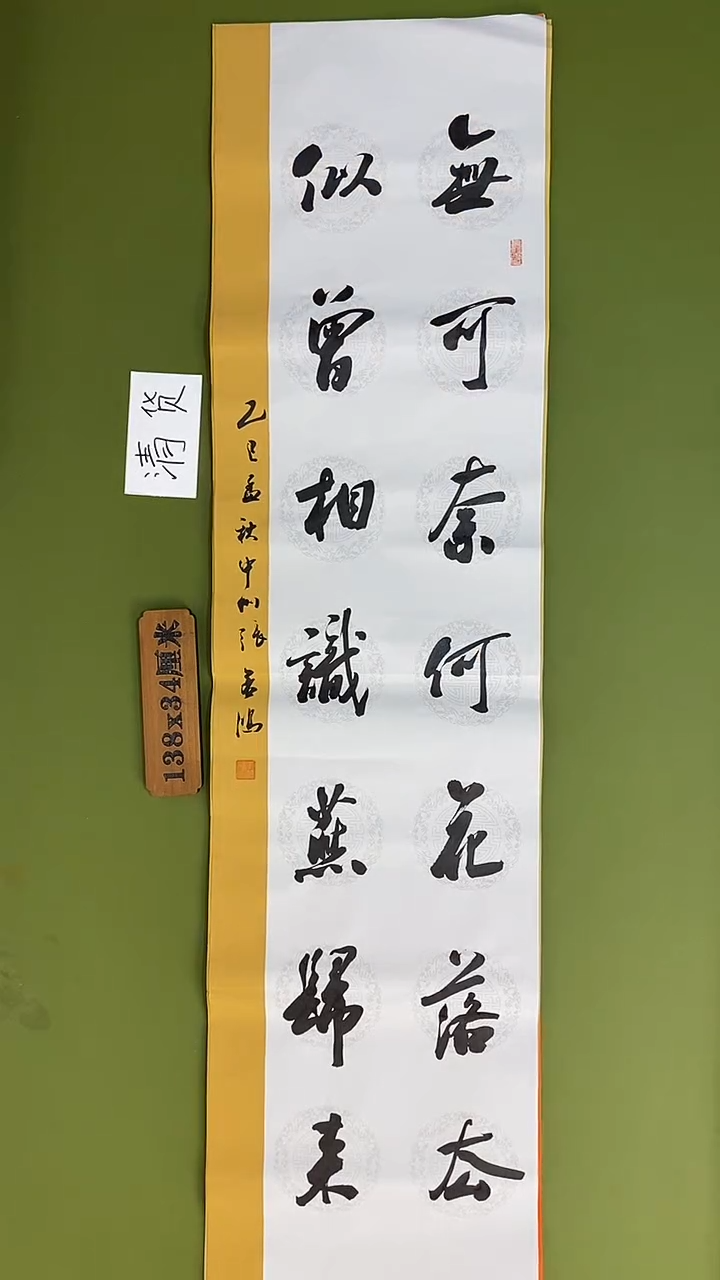 無可奈何花落去
似曾相識燕歸来
乙巳孟秋中州張
清货
138x34厘米